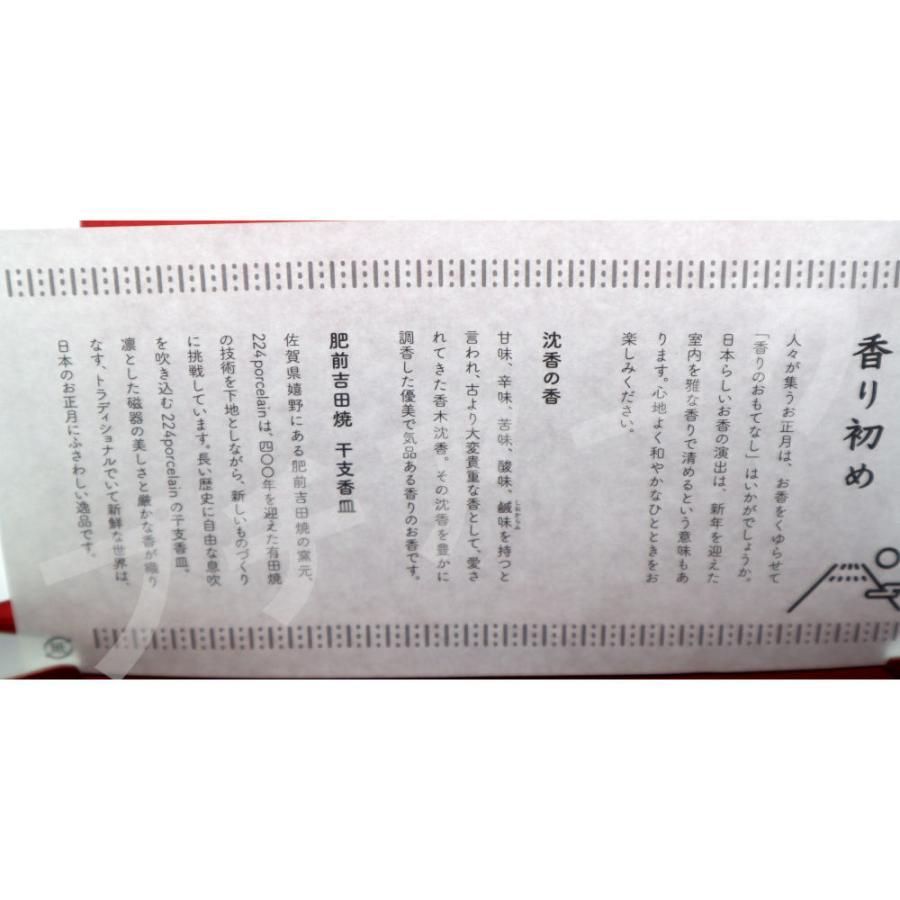 香り初め
人々が集うお正月は、お香をくゆらせて
「香りのおもてなし」はいかがでしょうか。
日本らしいお香の演出は、新年を迎えた
室内を雅な香りで清めるという意味もあ
ります。心地よく和やかなひとときをお
楽しみください。
沈香の香
甘味、辛味、苦味、酸味、鹹味を持つと
しおからみ
言われ、古より大変貴重な香として、愛さ
れてきた香木沈香。その沈香を豊かに
調香した優美で気品ある香りのお香です。
肥前吉田焼 干支香皿
佐賀県嬉野にある肥前吉田焼の窯元、
224porcelainは、四〇〇年を迎えた有田焼
の技術を下地としながら、新しいものづくり
に挑戦しています。長い歴史に自由な息吹
を吹き込む224porcelainの干支香皿。
凛とした磁器の美しさと厳かな香が織り
なす、トラディショナルでいて新鮮な世界は、
日本のお正月にふさわしい逸品です。